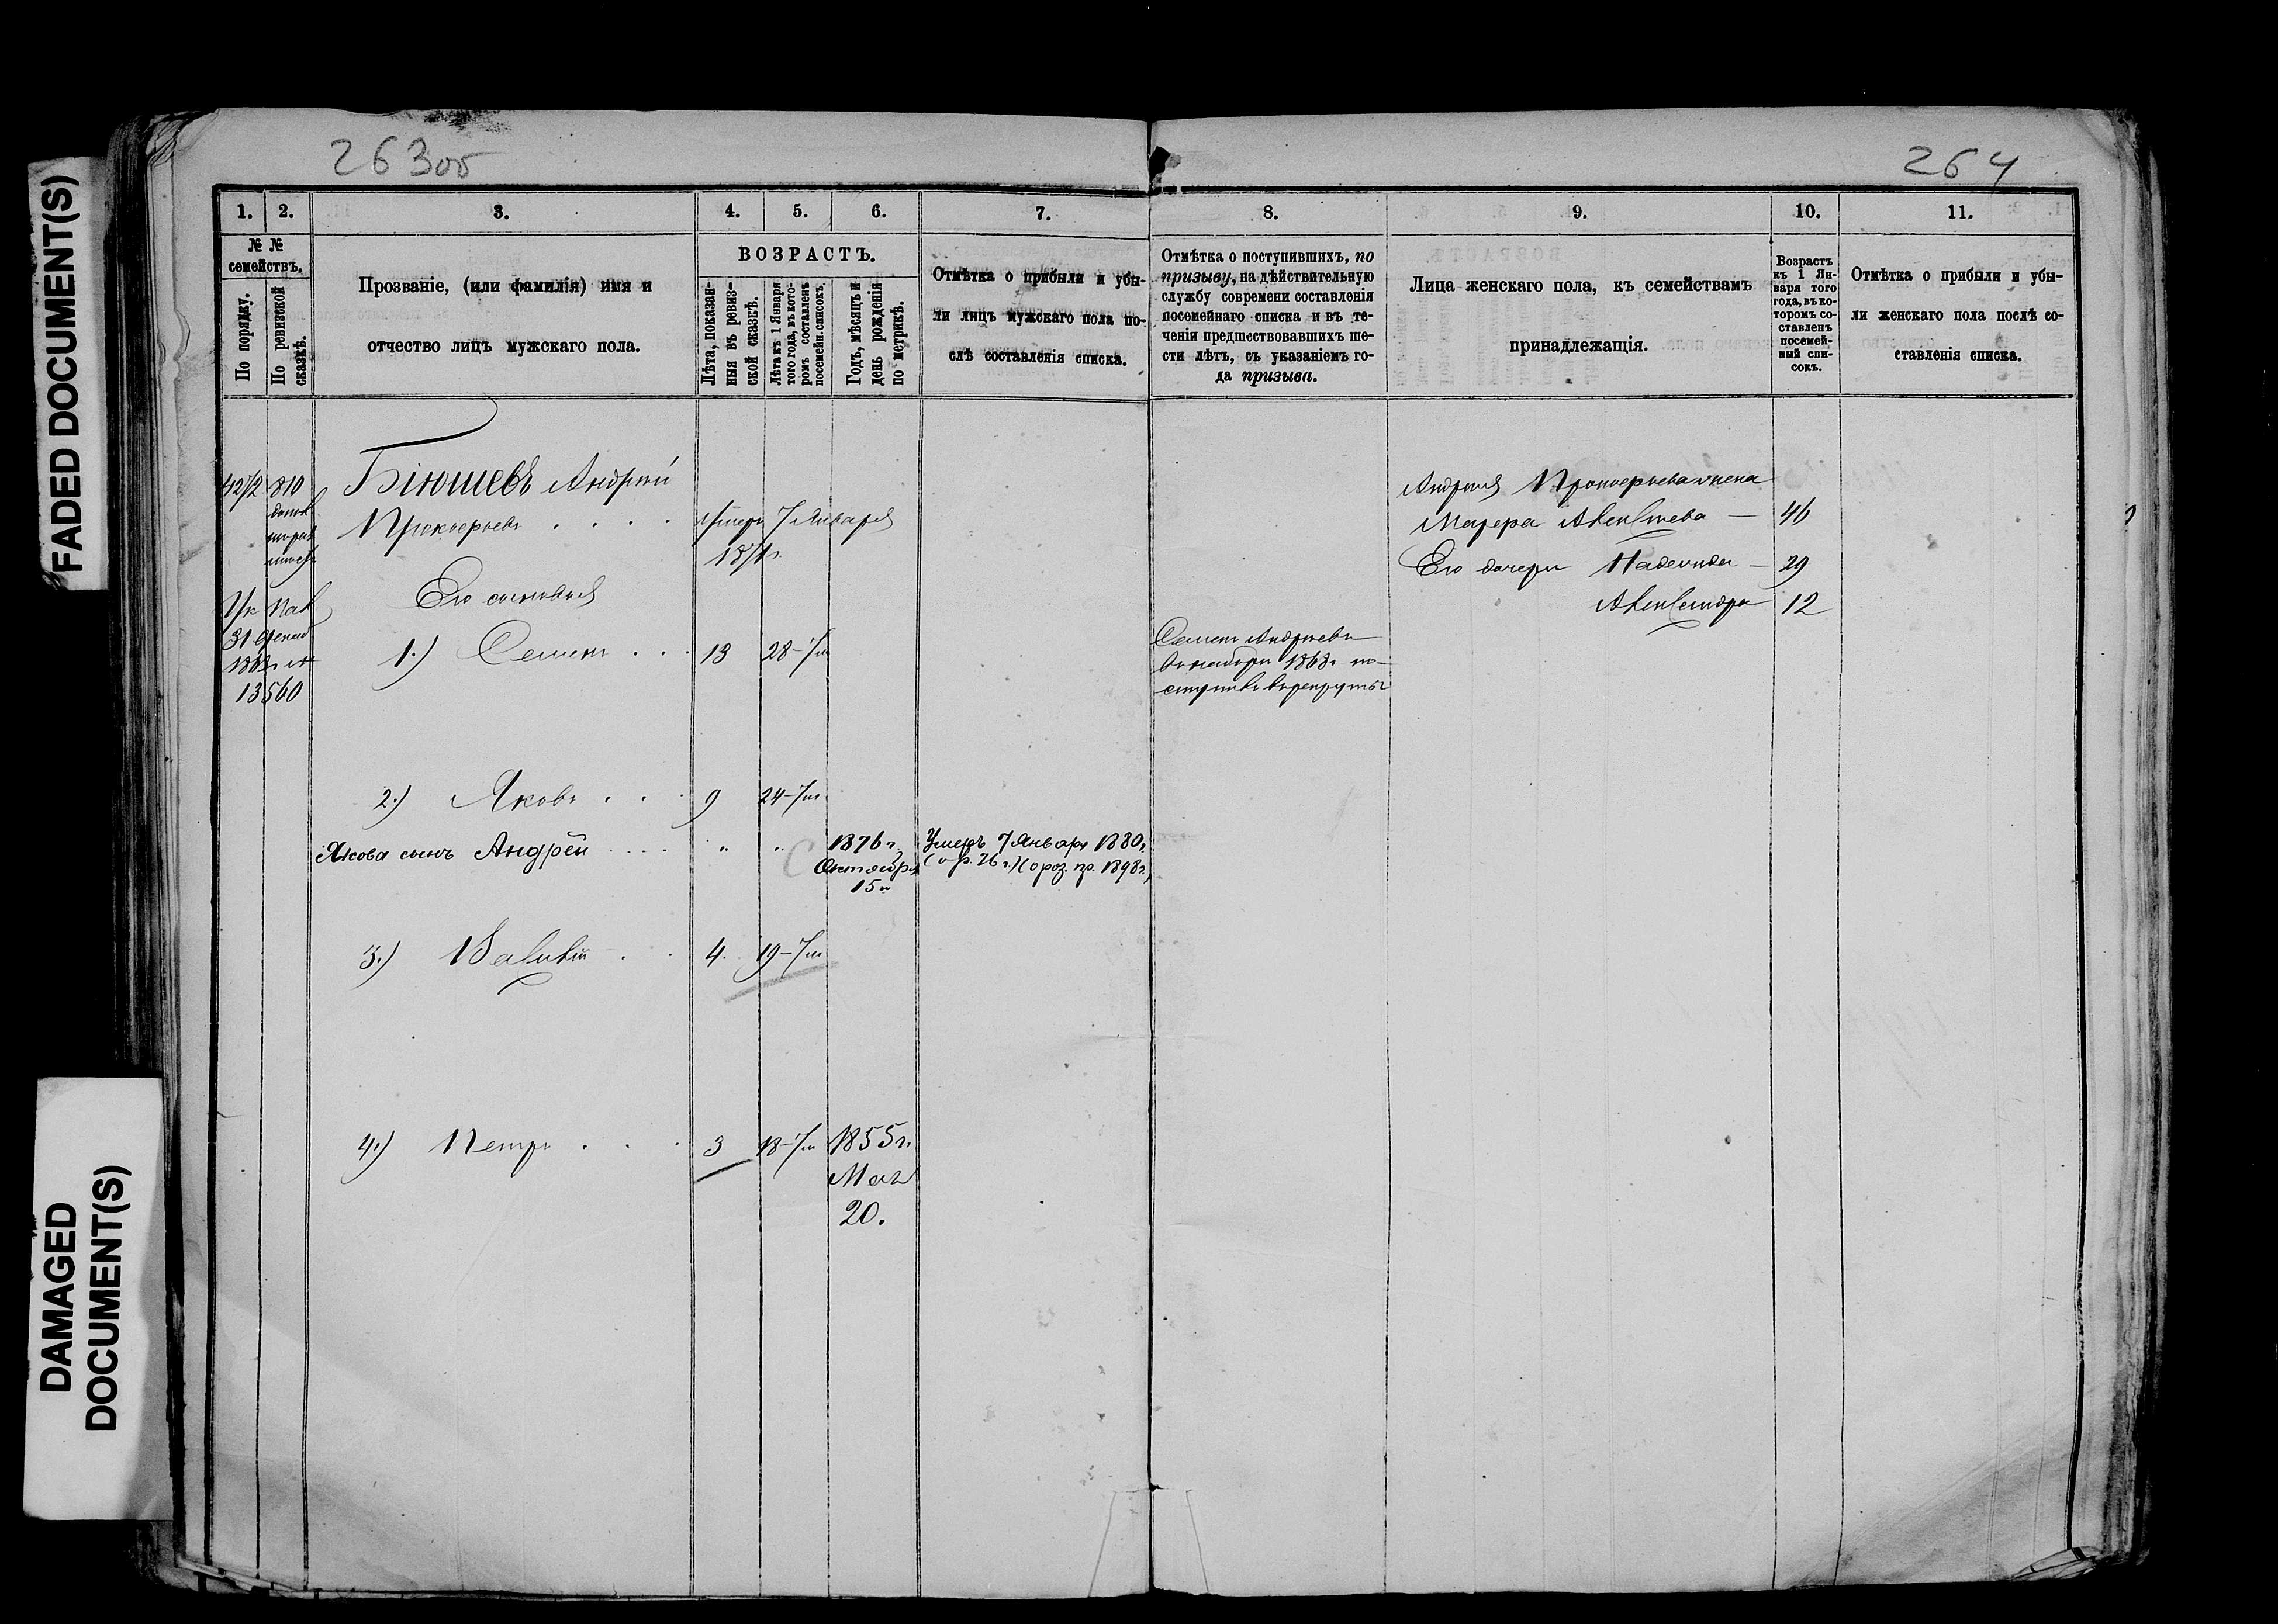 FADED DOCUMENT(S)
DAMAGED
DOCUMENT(S)
263об
264
1.
2.
3.
4.
5.
6.
7.
8.
9.
10.
11.
№ №
семействъ.
По порядку.
По ревизской
сказкѣ.
Прозваніе, (или фамилія) имя и
отчество лицъ мужскаго пола.
ВОЗРАСТЪ.
Лѣта, показан-
ныя въ ревиз-
ской сказкѣ.
Лѣта къ 1 Января
того года, въ кото-
ромъ составленъ
посемейн. списокъ.
Годъ, мѣсяцъ и
день рожденія
по метрикѣ.
Отмѣтка о прибыли и убы-
ли лицъ мужскаго пола по-
слѣ составленія списка.
Отмѣтка о поступившихъ, по
призыву, на дѣйствительную
службу современи составленія
посемейнаго списка и въ те-
ченіи предшествовавшихъ ше-
сти лѣтъ, съ указаніемъ го-
да призыва.
Лица женскаго пола, къ семействамъ
принадлежащія.
Возрастъ
къ 1 Ян-
варя того
года, въ ко-
торомъ со-
ставленъ
посемей-
ный спи-
сокъ.
Отмѣтка о прибыли и убы-
ли женскаго пола послѣ со-
ставленія списка.
810
Бікошевъ Андрей
Прокофьевъ . . . . Умеръ 7 Января
187 г.
Его сыновья
31 Декаб
13560
1.) Семенъ . . 13 28-7м
Семенъ Андреевъ
въ 1868г по-
ступивъ въ рекруты
2.) Яковъ . . . 9 24-7м
Якова сынъ Андрей . . . . " " 1876 г.
Октября
15го
Умеръ 7 Января 1880г.
(о р. 76 г.) (о роз. пр. 1898г.)
3.) Василій . . 4. 19-7м
4.) Петръ . . . 3 18-7м 1855г.
Мая
20.
Андрея Прокофьева жена
Марфа Алексеева — 46
Его дочери Надежда — 29
Александра 12